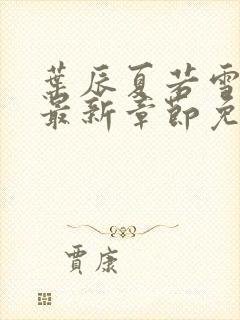 葉辰夏若雪
最新章節免
賈康